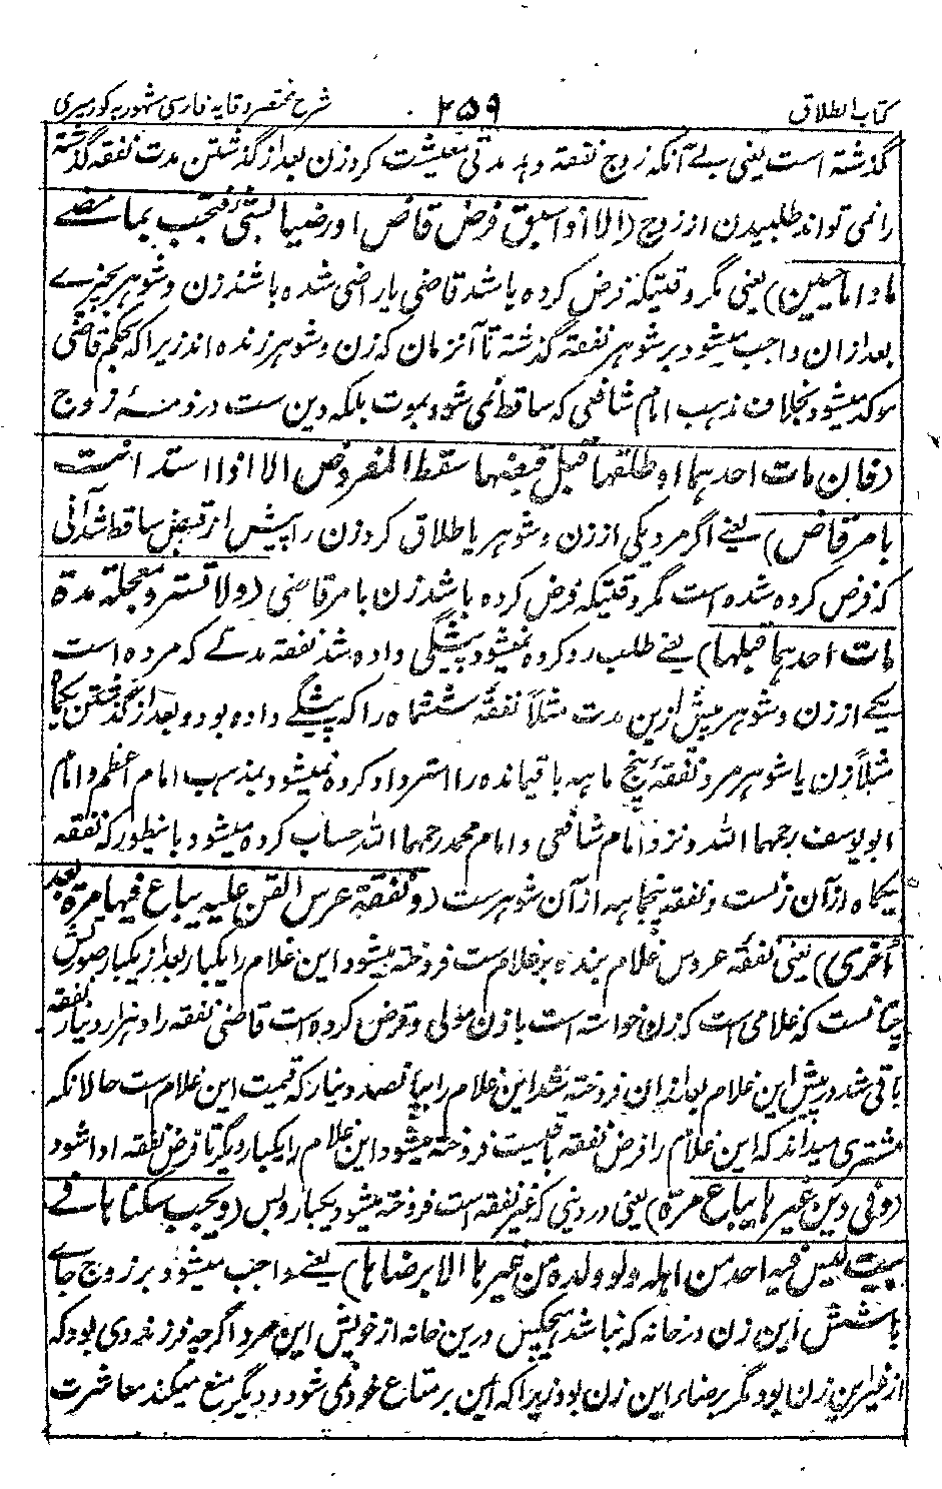 کتاب الطلاق ۲۵۹ شرح مختصر وقایه فارسی مشهور به کور میری
گذشته است یعنی بے آنکه زوج نفقه دهد مدتی معیشت کرد زن بعد از گذشتن مدت نفقه گذشته
را نمی تواند طلبیدن از زوج (الا اذا سبق فرض قاض او رضیا بشئ فتجب بما مضے
ما داما حیین) یعنی مگر وقتیکه فرض کرده باشد قاضی یا راضی شده باشند زن و شوهر بچیزے
بعد ازان واجب میشود بر شوهر نفقه گذشته تا آنزمان که زن و شوهر زنده اند زیرا که بحکم قاضی
موکد میشود بخلاف مذهب امام شافعی که ساقط نمی شود بموت بلکه دین ست در ذمۀ زوج
(فان مات احدهما او طلقها قبل قبضها سقط المفروض الا اذا استدانت
بامر قاض) یعنے اگر مرد یکی از زن و شوهر یا طلاق کرد زن را پیش از قبض ساقط شد آنی
که فرض کرده شده است مگر وقتیکه قرض کرده باشد زن بامر قاضی (ولا تسترد معجلة مدة
مات احدهما قبلها) یعنے طلب رد کرده نمیشود پیشگی داده شد نفقه مدتے که مرده است
یکے از زن و شوهر پیش ازین مدت مثلاً نفقۀ ششماه را که پیشگے داده بود و بعد از گذشتن یکماه
مثلاً زن یا شوهر مرد نفقۀ پنج ماهه باقیمانده را استرداد کرده نمیشود بمذهب امام اعظم و امام
ابو یوسف رحمهما الله و نزد امام شافعی و امام محمد رحمهما الله حساب کرده میشود باینطور که نفقه
یکماه از آن زنست و نفقه پنجماهه از آن شوهرست (و نفقة عرس القن علیه یباع فیها مرة بعد
اخری) یعنی نفقۀ عروس غلام بنده بر غلام ست فروخته میشود این غلام را یکبار بعد از یکبار صورتش
چنانست که غلامی است که زن خواسته است باذن مولی و فرض کرده است قاضی نفقه را و هزار دینار نفقه
باقی شد در پیش این غلام بعد ازان فروخته شد این غلام را بپانصد دینار که قیمت این غلام است حالانکه
مشتری میداند که این غلام را قرض نفقه باقیست فروخته میشود این غلام را یکبار دیگر تا قرض نفقه ادا شود
(و فی دین غیرها یباع مرة) یعنی در دینی که غیر نفقه است فروخته میشود یکبار و بس (و یجب سکناها فے
بیت لیس فیه احد من اهله ولو ولده من غیرها الا برضاها) یعنے واجب میشود بر زوج جاے
باشش این زن در خانه که نباشد هیچکس درین خانه از خویش این مرد اگرچه فرزند وی بود که
از غیر این زن بود مگر برضاء این زن بود زیرا که این بر متاع خود نمی شود و دیگر منع میکند معاشرت